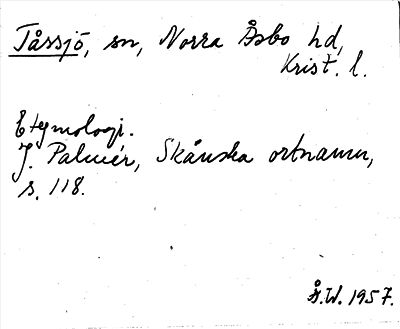 Tåssjö, sn, Norra Åsbo hd,
Krist. l.
Etymologi.
J. Palmér, Skånska ortnamn,
s. 118.
Å.W. 1957.